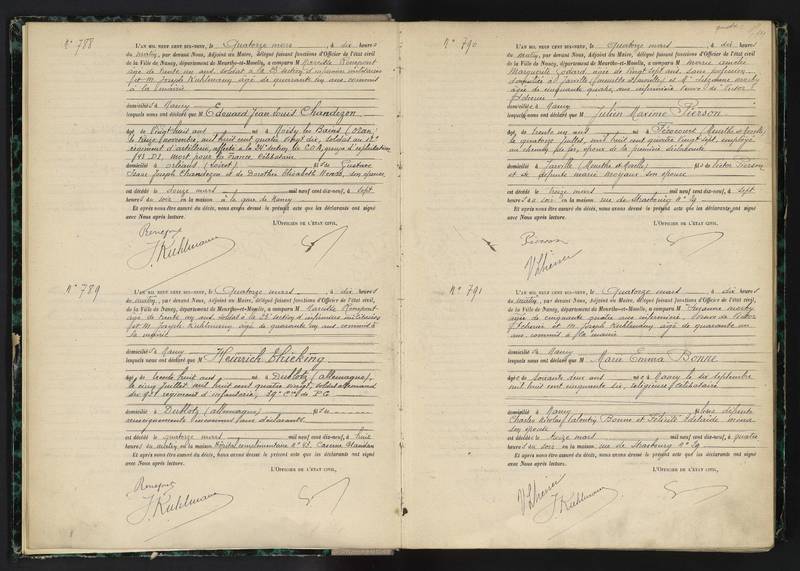 N° 788
L'AN MIL NEUF CENT DIX-NEUF, le Quatorze mars, à dix heures
du matin, par devant Nous, Adjoint au Maire, délégué faisant fonctions d'Officier de l'état civil,
de la Ville de Nancy, département de Meurthe-et-Moselle, a comparu M
âgé de trente un ans, soldat à la 23e section d'infirmiers militaires
et M. Joseph Kuhlmann âgé de quarante un ans commis
à la mairie
domiciliés à Nancy
lesquels nous ont déclaré que M Edouard Jean Louis Chandezon
âgé de vingt huit ans né à Noisy les Bains (Oran)
le treize novembre mil huit cent quatre vingt dix, soldat au 12e
régiment d'artillerie, affecté à la section, groupe d'exploitation
mort pour la France, célibataire
domicilié à Orléans (Loiret) fils de Gustave
Jean Joseph Chandezon et de Dorothée Elisabeth, son épouse
est décédé le douze mars mil neuf cent dix-neuf, à sept
heures du soir en la maison à la gare de Nancy
Et après nous être assuré du décès, nous avons dressé le présent acte que les déclarants ont signé
avec Nous après lecture.
L'OFFICIER DE L'ÉTAT CIVIL,
J. Kuhlmann
N° 789
L'AN MIL NEUF CENT DIX-NEUF, le Quatorze mars, à dix heures
du matin, par devant Nous, Adjoint au Maire, délégué faisant fonctions d'Officier de l'état civil,
de la Ville de Nancy, département de Meurthe-et-Moselle, a comparu M
âgé de trente un ans, soldat à la 23e section d'infirmiers militaires
et M. Joseph Kuhlmann âgé de quarante un ans, commis à
la mairie
domiciliés à Nancy
lesquels nous ont déclaré que M Heinrich Thieking
âgé de trente huit ans né à (Allemagne),
le cinq juillet mil huit cent quatre vingt, soldat allemand
du 91e régiment d'infanterie, de P.G.
domicilié à (Allemagne) fils de
renseignements inconnus des déclarants
est décédé le quatorze mars mil neuf cent dix-neuf, à huit
heures du matin, en la maison Hôpital complémentaire Caserne Blandan
Et après nous être assuré du décès, nous avons dressé le présent acte que les déclarants ont signé
avec Nous après lecture.
L'OFFICIER DE L'ÉTAT CIVIL,
J. Kuhlmann
N° 790
L'AN MIL NEUF CENT DIX-NEUF, le Quatorze mars, à dix heures
du matin, par devant Nous, Adjoint au Maire, délégué faisant fonctions d'Officier de l'état civil,
de la Ville de Nancy, département de Meurthe-et-Moselle, a comparu M Marie Amélie
Marguerite Godard âgée de vingt sept ans, sans profession,
domiciliée à Jarville (Meurthe et Moselle) et M Suzanne
âgée de cinquante quatre ans infirmière veuve de Victor
domiciliés à Nancy
lesquels nous ont déclaré que M Julien Maxime Pierson
âgé de trente un ans né à (Meurthe et Moselle)
le quatorze juillet, mil huit cent quatre vingt sept, employé
au chemin de fer, époux de la première déclarante
domicilié à Jarville (Meurthe et Moselle) fils de Victor Pierson
et de défunte Marie son épouse
est décédé le treize mars mil neuf cent dix-neuf, à sept
heures du soir en la maison rue de Strasbourg N°
Et après nous être assuré du décès, nous avons dressé le présent acte que les déclarants ont signé
avec Nous après lecture.
L'OFFICIER DE L'ÉTAT CIVIL,
Pierson
N° 791
L'AN MIL NEUF CENT DIX-NEUF, le Quatorze mars, à dix heures
du matin, par devant Nous, Adjoint au Maire, délégué faisant fonctions d'Officier de l'état civil,
de la Ville de Nancy, département de Meurthe-et-Moselle, a comparu M Suzanne
âgée de cinquante quatre ans infirmière veuve de Victor
et M. Joseph Kuhlmann âgé de quarante un
ans, commis à la mairie
domiciliés à Nancy
lesquels nous ont déclaré que M Marie Emma Bonne
âgée de soixante deux ans née à Nancy le six septembre
mil huit cent cinquante six, religieuse, célibataire
domiciliée à Nancy fille de défunts
Charles Nicolas Valentin Bonne et Félicité Adélaïde
son épouse
est décédée le treize mars mil neuf cent dix-neuf, à quatre
heures du soir en la maison rue de Strasbourg N°
Et après nous être assuré du décès, nous avons dressé le présent acte que les déclarants ont signé
avec Nous après lecture.
L'OFFICIER DE L'ÉTAT CIVIL,
J. Kuhlmann